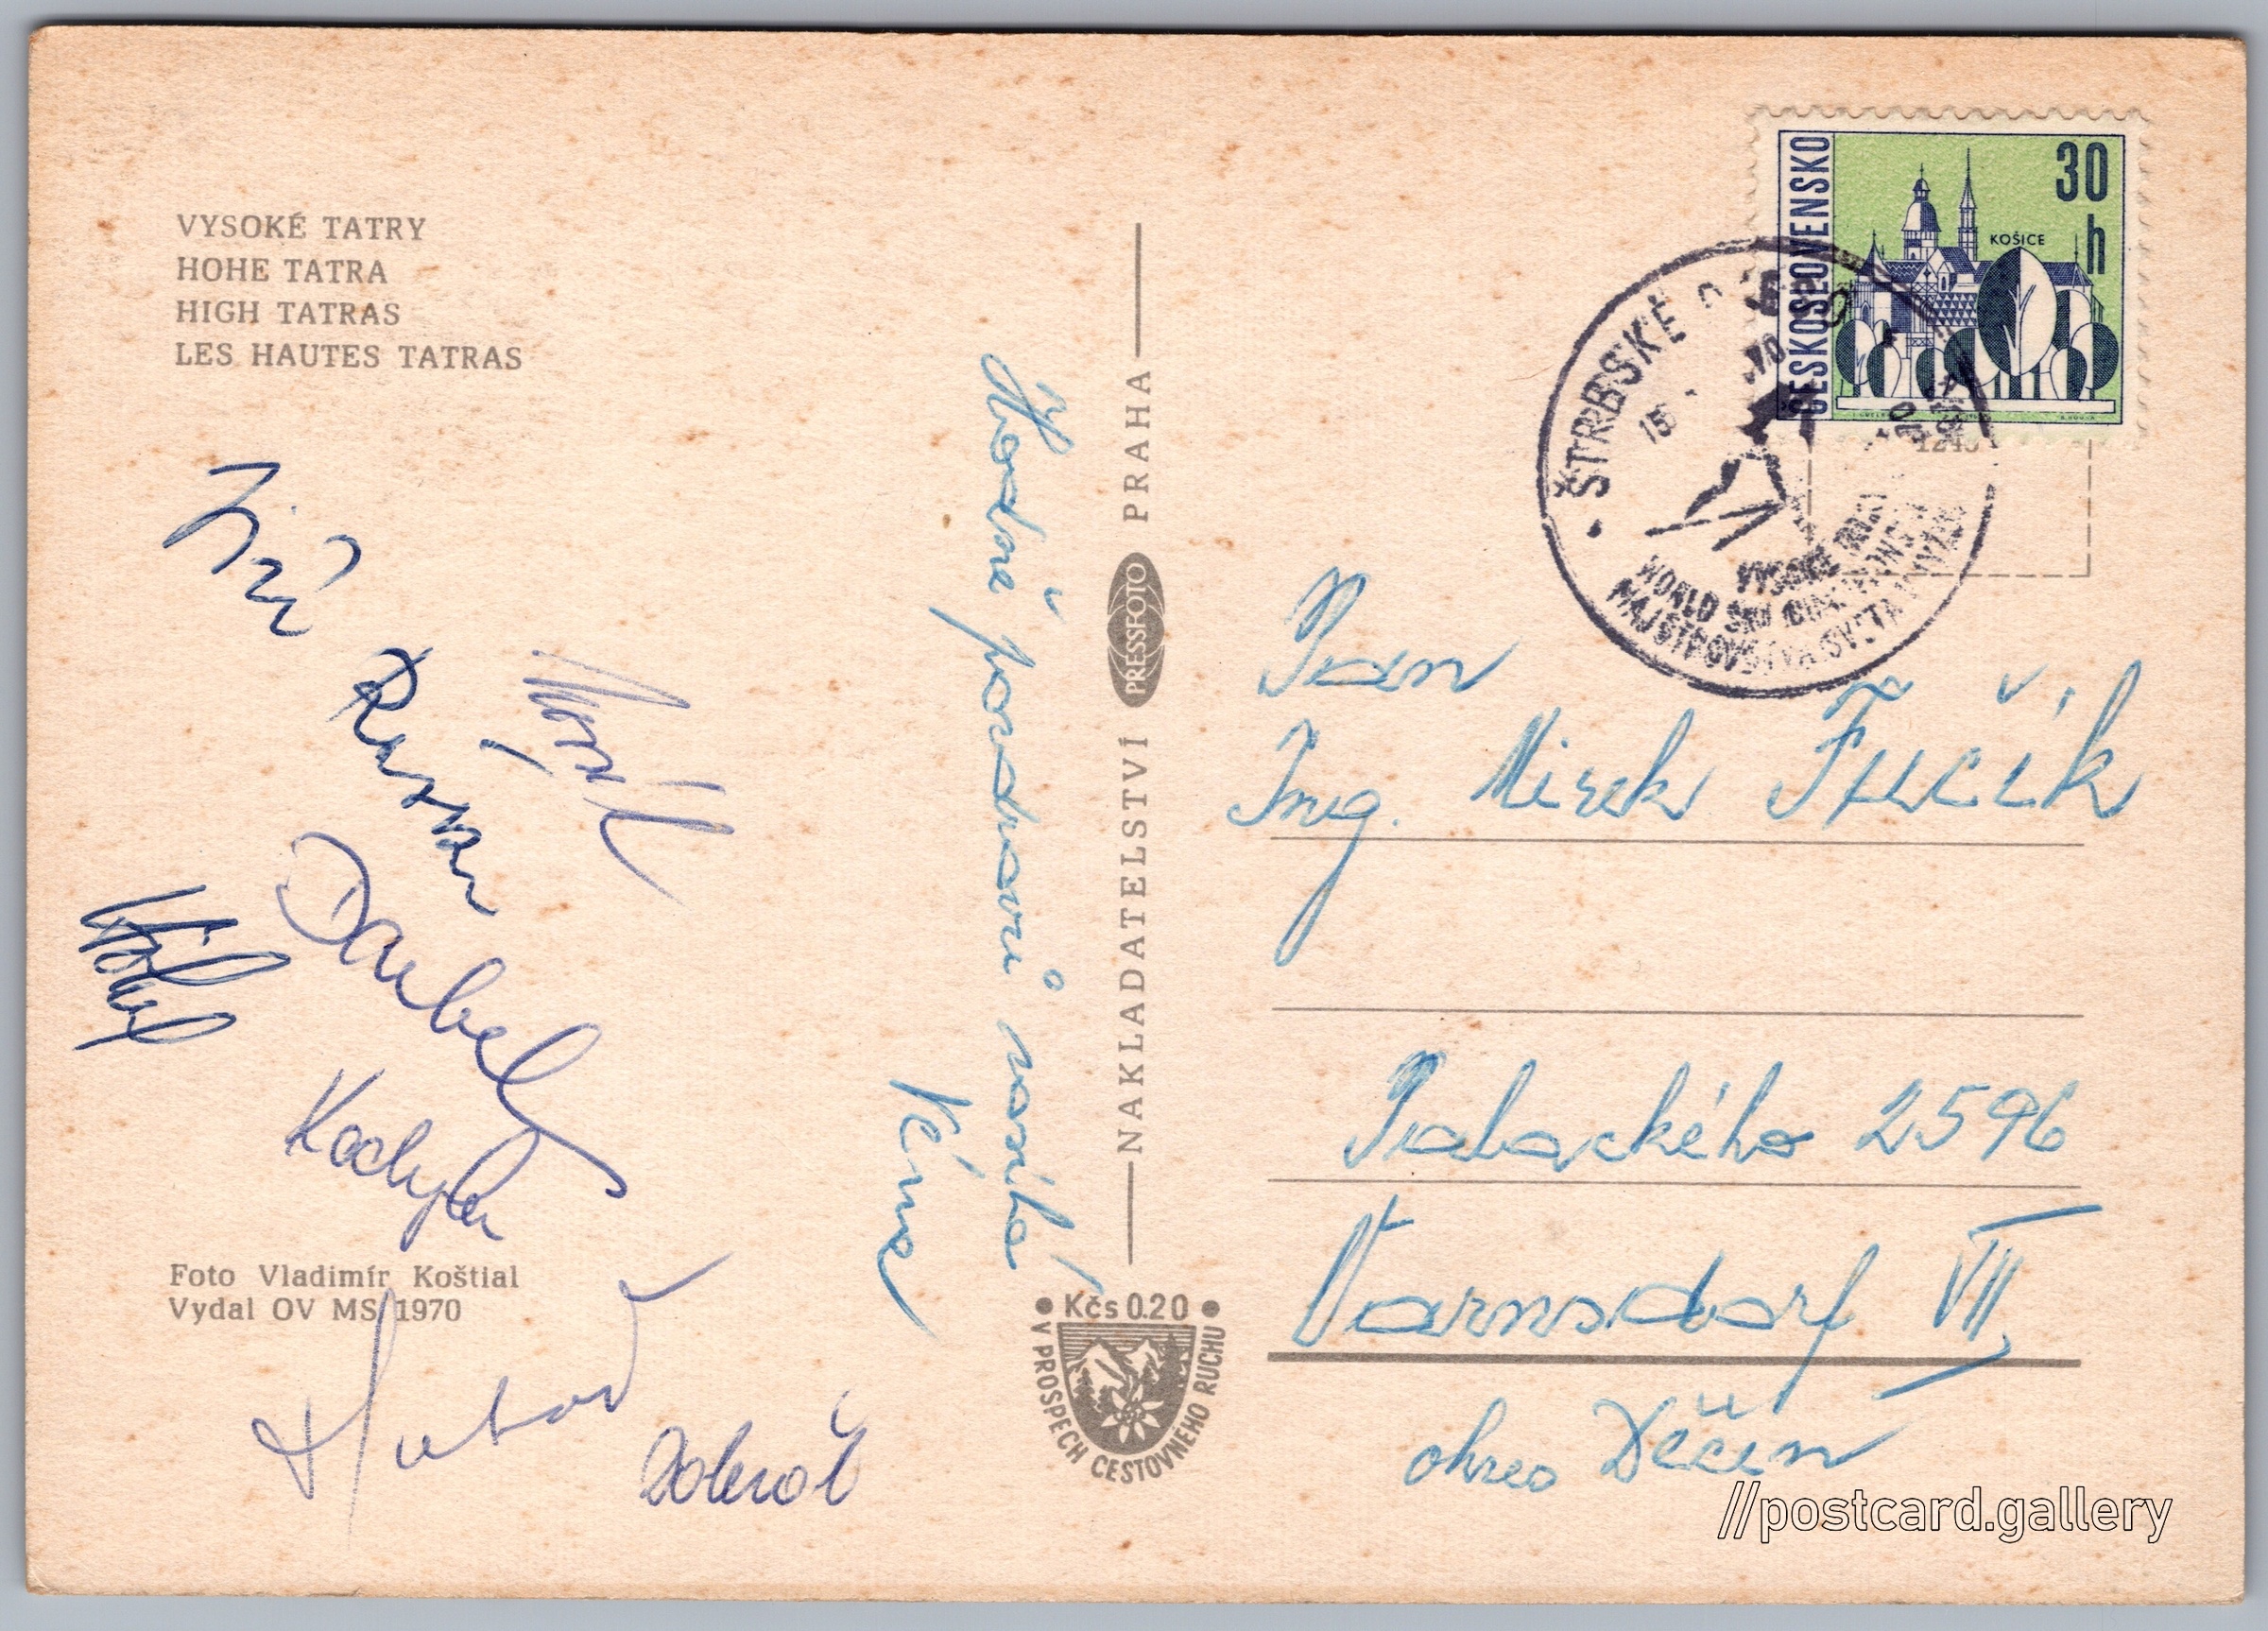 VYSOKÉ TATRY
HOHE TATRA
HIGH TATRAS
LES HAUTES TATRAS
Jiří
Raška
Daubek
Kodejška
Hubač
Doležal
Foto Vladimír Koštial
Vydal OV MS 1970
Hodně pozdravů zasílá
NAKLADATELSTVÍ PRESSFOTO PRAHA
Kčs 0.20
V PROSPECH CESTOVNÉHO RUCHU
ČESKOSLOVENSKO
30
h
KOŠICE
ŠTRBSKÉ
15
70
VYSOKÉ
WORLD SKI
MAJSTROVSTVÁ SVETA
Pan
Ing. Mirek Fučík
Palackého 2596
Varnsdorf VII,
okres Děčín
//postcard.gallery